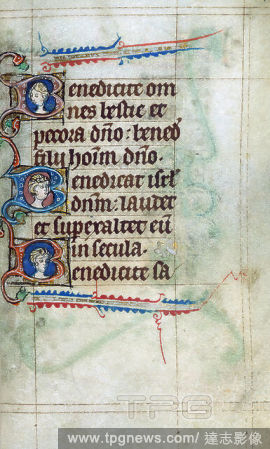 Benedicite om
nes bestie et
pecora dno: bened
filii hoim dno.
Benedicat isrl
dnm: laudet
et superaltet eu
in secula.
Benedicite sa
TPG
www.tpgnews.com/達志影像